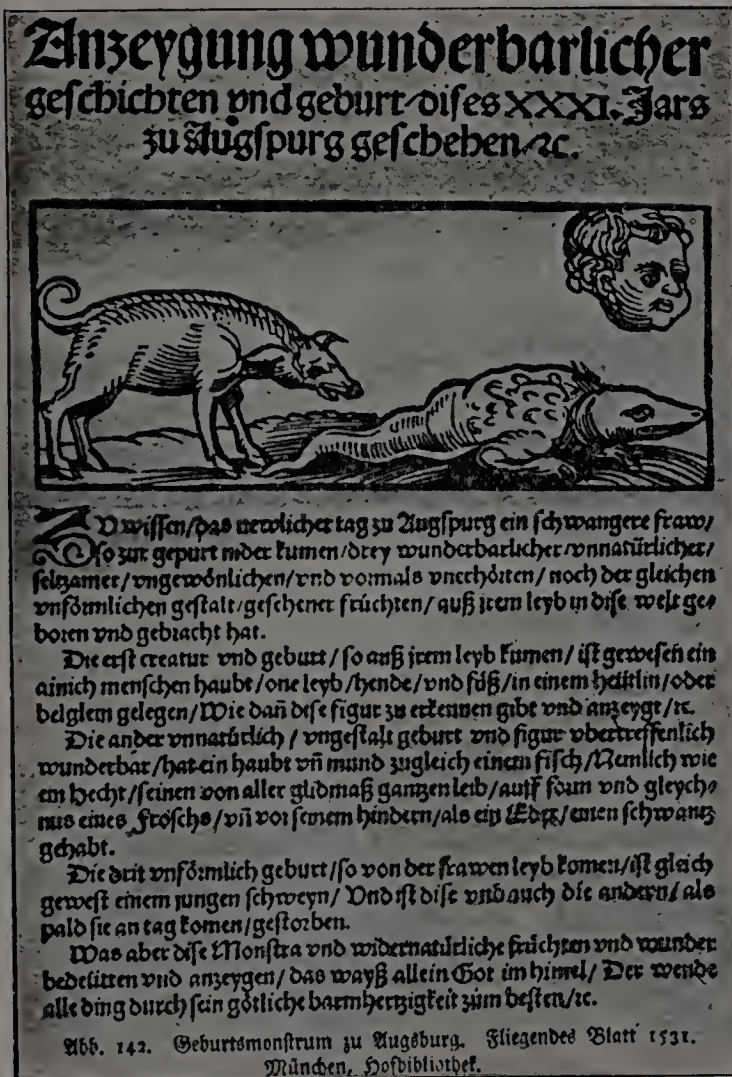 Anzeygung wunderbarlicher
geschichten vnd geburt/dises XXXI. Jars
zu Augspurg geschehen/ꝛc.
ZV wissen/das newlicher tag zu Augspurg ein schwangere fraw/
so zur gepurt nider kumen/drey wunderbarlicher/vnnatürlicher/
seltzamer/vngewönlichen/vnd vormals vnerhörten/noch der gleichen
vnförmlichen gestalt/gesehener früchten/auß jrem leyb in dise welt ge⸗
boren vnd gebracht hat.
Die erst creatur vnd geburt/so auß jrem leyb kumen/ist gewesen ein
ainich menschen haubt/one leyb/hende/vnd füß/in einem heütlin/oder
belglem gelegen/Wie dañ dise figur zu erkennen gibt vnd anzeygt/ꝛc.
Die ander vnnatürlich/vngestalt geburt vnd figur vbertreffenlich
wunderbar/hat ein haubt vñ mund zugleich einem fisch/Nemlich wie
ein Hecht/seinen von aller glidmaß gantzen leib/auff form vnd gleych⸗
nus eines Froschs/vñ vor seinem hindern/als ein Edex/einen schwantz
gehabt.
Die drit vnförmlich geburt/so von der frawen leyb komen/ist gleich
gewest einem jungen schweyn/Vnd ist dise vnd auch die andern/als
pald sie an tag komen/gestorben.
Was aber dise Monstra vnd widernatürliche früchten vnd wunder
bedeütten vnd anzeygen/das wayß allein Got im himel/Der wende
alle ding durch sein götliche barmhertzigkeit zům besten/ꝛc.
Abb. 142. Geburtsmonstrum zu Augsburg. Fliegendes Blatt 1531.
München, Hofbibliothek.